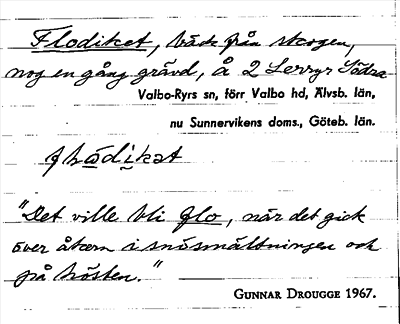 Flodiket, bäck från skogen,
nog en gång grävd, å 2 Lerryr Södra
Valbo-Ryrs sn, förr Valbo hd, Älvsb. län,
nu Sunnervikens doms., Göteb. län.
"Det ville bli flo, när det gick
över åkern i snösmältningen och
på hösten."
GUNNAR DROUGGE 1967.